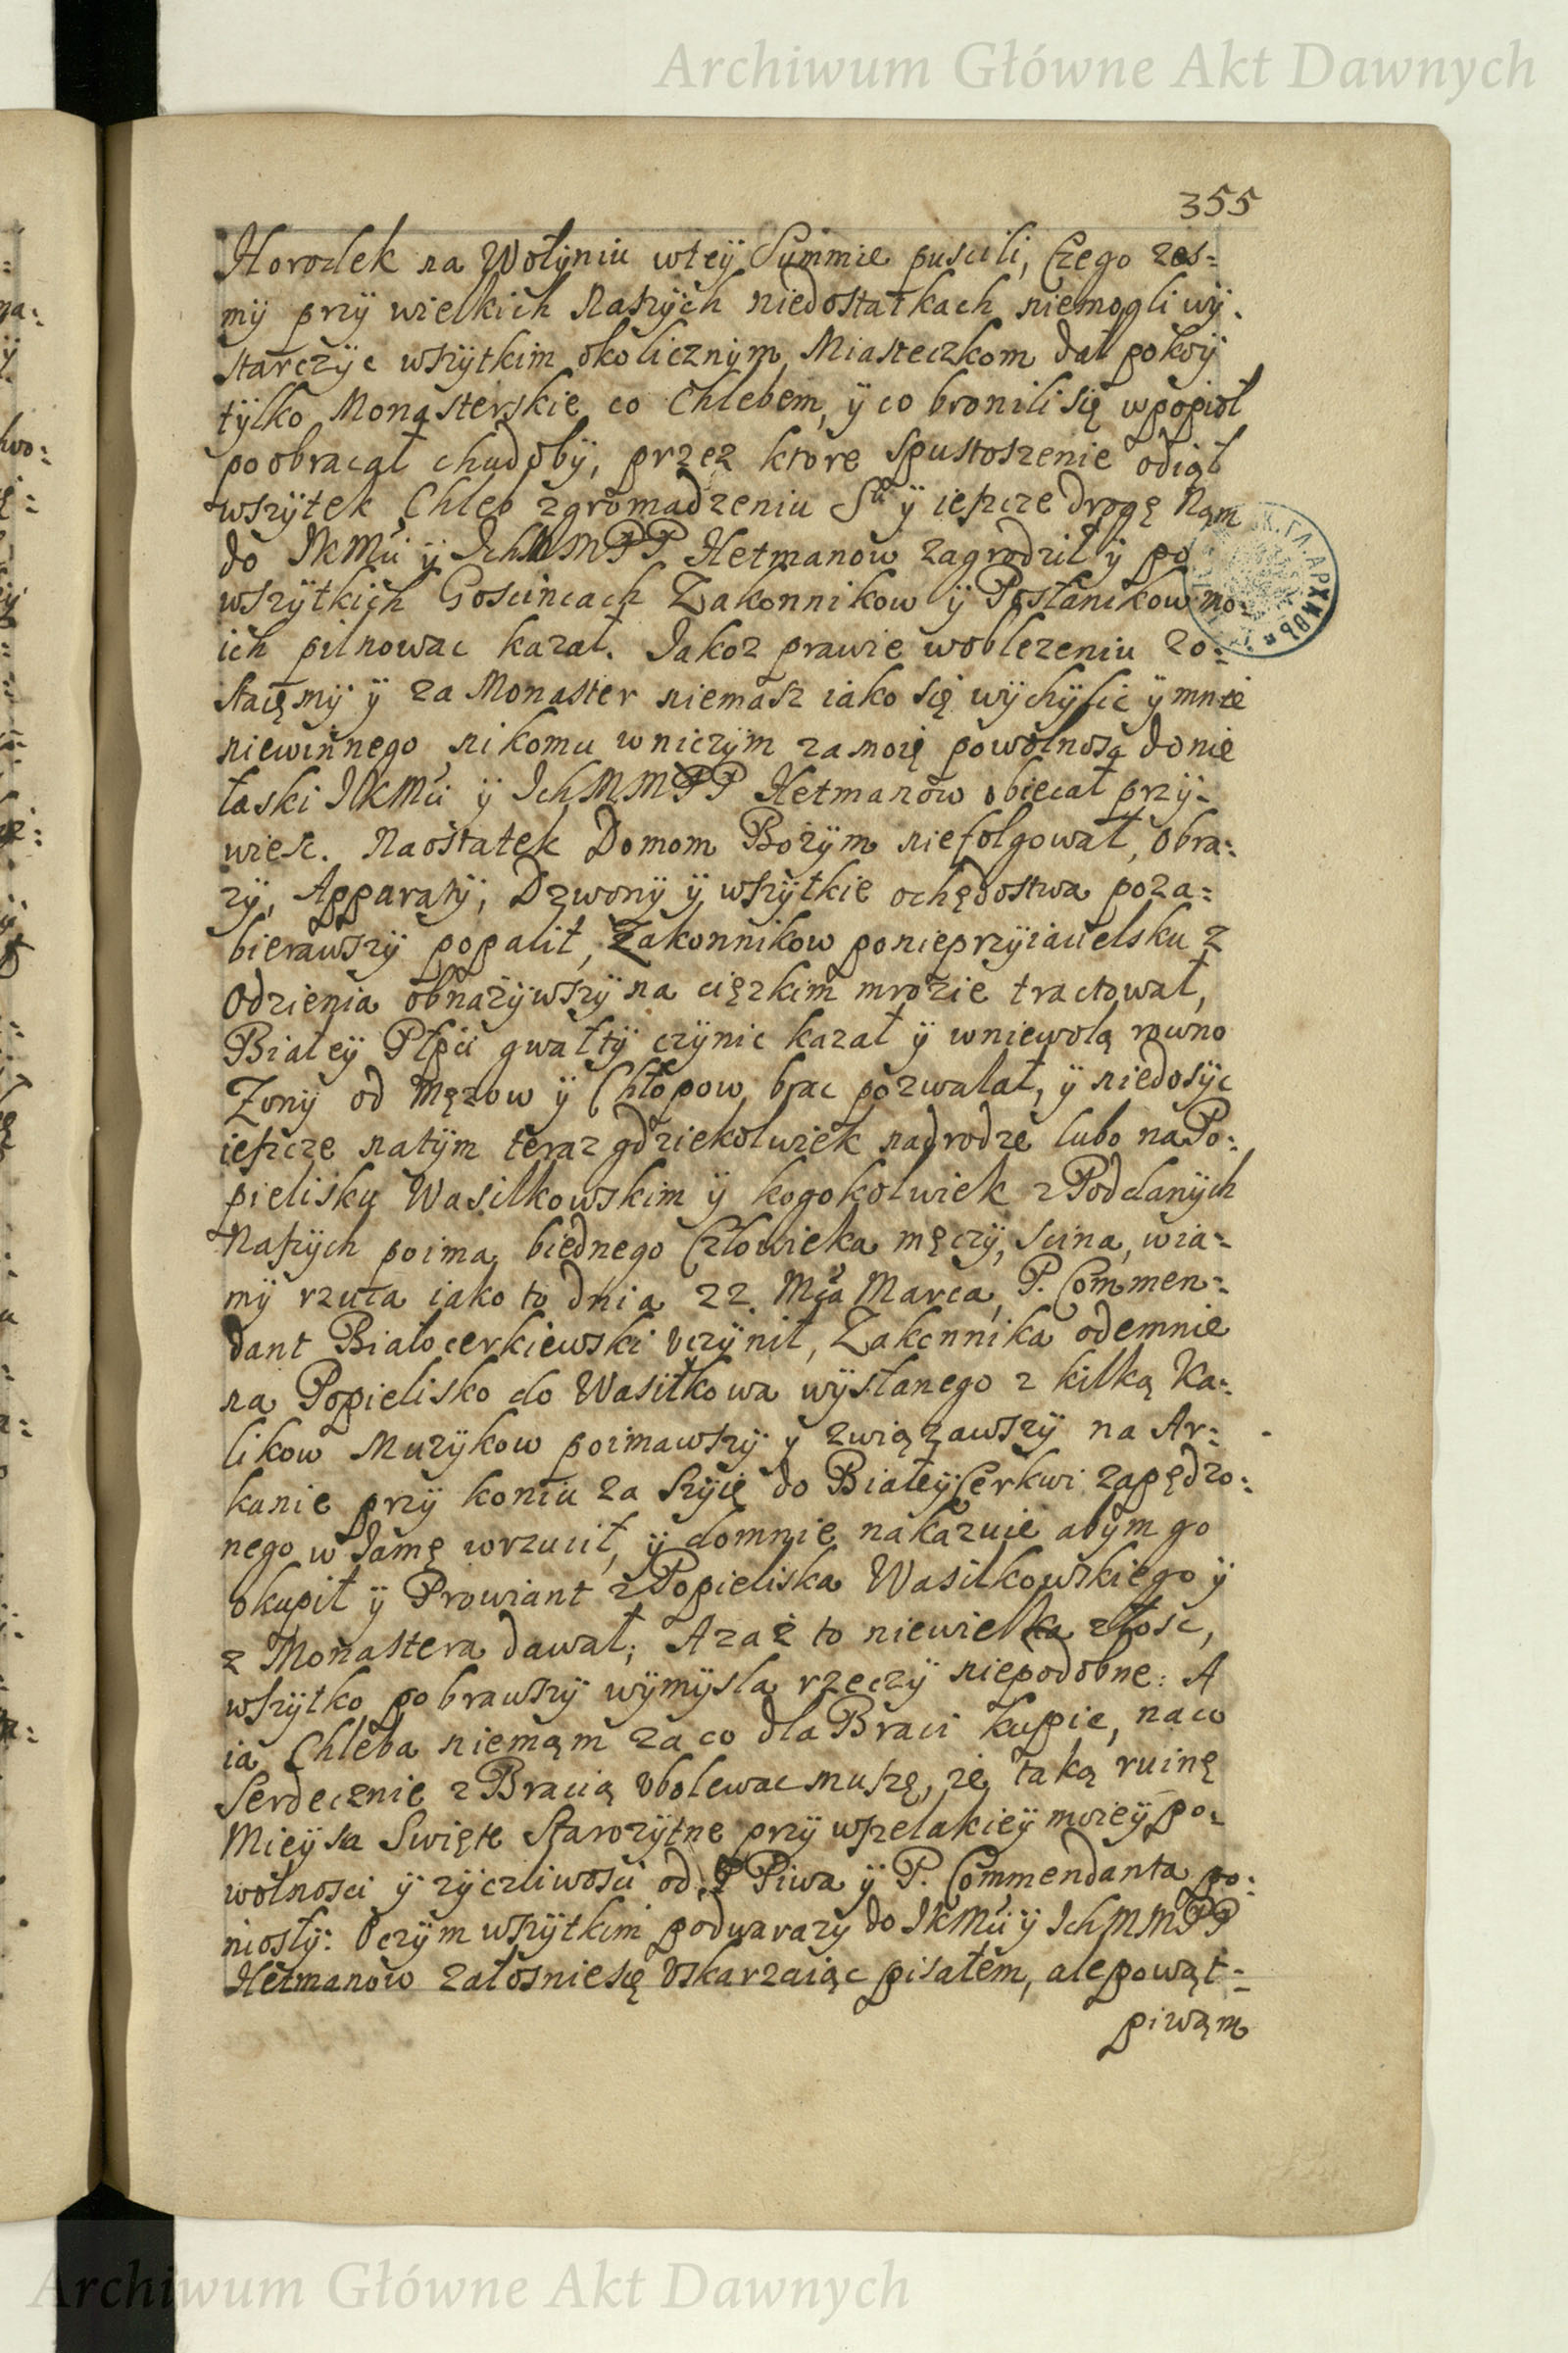 Archiwum Główne Akt Dawnych
355
Horodek na Wołÿniu wteÿ Summie puscili, Czego zes=
mÿ przÿ wielkich Naszÿch niedostatkach niemogli wÿ.
starczÿc wszÿtkim okolicznÿm Miasteczkom dał pokoÿ
tÿlko Monasterskie co Chlebem, ÿ co bronili się wpopioł
poobracał chudobÿ, przez ktore Spustoszenie odiął
wszÿtek Chleb zgromadzeniu Sº ÿ ieszcze drogę Nąm
do JKMci ÿ IchMMPP Hetmanow zagrodził ÿ po
wszÿtkich Goscincach Zakonnikow ÿ Posłanikow mo=
ich pilnowac kazał. Jakoz prawie woblezeniu zo=
staięmÿ ÿ za Monaster niemasz iako się wÿchÿlic ÿ mnie
niewinnego nikomu wniczÿm za moię powolnosą do nie
łaski JKMci ÿ IchMMPP Hetmanow obiecał przÿ=
wiesc. Naostatek Domom Bożÿm niefolgował, Obra=
zÿ, Apparatÿ, Dzwonÿ ÿ wszÿtkie ochędostwa poza=
bierawszÿ popalił, Zakonnikow ponieprzÿiacielsku z
Odzienia obnazÿwszÿ na cięzkim mrozie tractował,
Białeÿ Płpci gwałtÿ czÿnic kazał ÿ wniewolą rowno
Zonÿ od Męzow ÿ Chłopow brac pozwalał, ÿ niedosÿc
ieszcze natÿm teraz gdziekolwiek nadrodze lubo na Po=
pielisku Wasilkowskim ÿ kogokolwiek z Poddanÿch
Naszÿch poima biednego Człowieka męczÿ, scina, wia=
mÿ rzuca iako to dnia 22 Mca Marca, P. Commen=
dant Białocerkiewski vczÿnił, Zakonnika odemnie
na Popielisko do Wasiłkowa wÿsłanego z kilką Ka=
likow Muzÿkow poimawszÿ ÿ związawszÿ na Ar=
kanie przÿ koniu za szÿię do BiałeÿCerkwi zapędzo=
nego w Jamę wrzucił, ÿ domnie nakazuie abÿm go
okupił ÿ Prowiant z Popieliska Wasilkowskiego ÿ
z Monastera dawał; Azaż to niewielka złosc,
wszÿtko pobrawszÿ wÿmÿsla rzeczÿ niepodobne: A
ia Chleba niemąm zaco dla Braci kupic, naco
Serdecznie z Bracią vbolewac muszę, zę taką ruinę
Mieÿsca Swięte Starozÿtne przÿ wszelakieÿ moieÿ po=
wolnosci ÿ zÿczliwosci od P Piwa ÿ P. Commendanta po=
niosłÿ: Oczÿm wszÿtkim podwarazÿ do JKMci ÿ IchMMPP
Hetmanow załosniesię Vskarzaiąc pisałem, ale powąt=
piwąm
Archiwum Główne Akt Dawnych